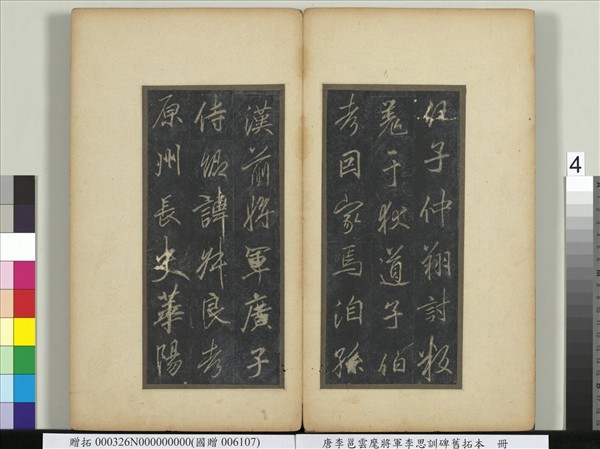 子仲翔討叛
羌于狄道子伯
考因家焉洎孫
漢前將軍廣子
侍諱叔良考
原州長史華陽
4
贈拓 000326N000000000(國贈 006107)
唐李邕雲麾將軍李思訓碑舊拓本 冊